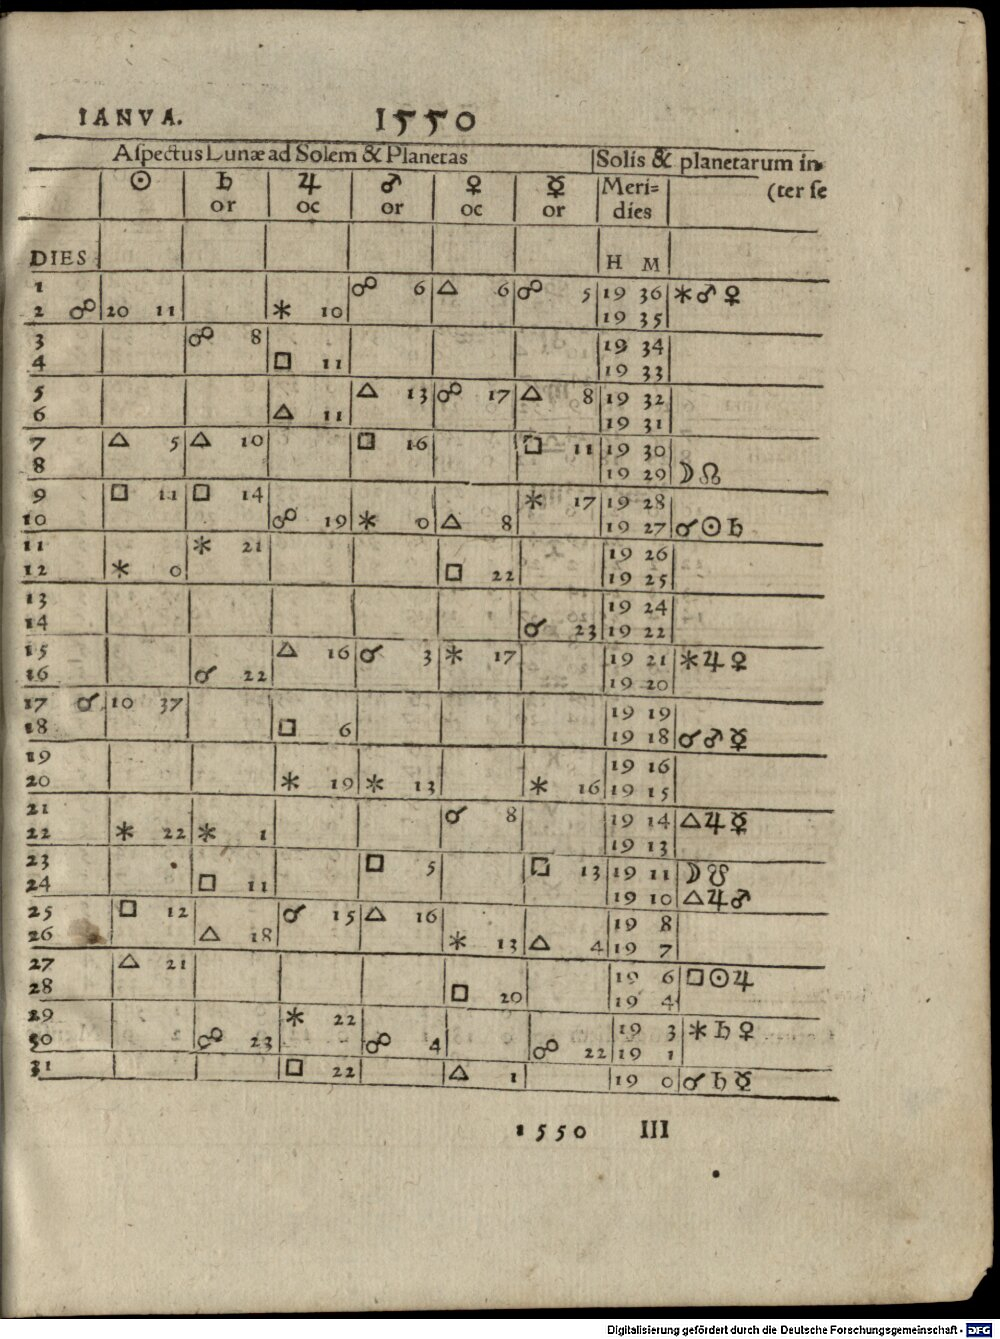 IANVA. 1550
Aſpectus Lunæ ad Solem & Planetas Solis & planetarum in-
☉ ♄ ♃ ♂ ♀ ☿ Meri= (ter ſe
or oc or oc or dies
DIES H M
1 ☍ 6 △ 6 ☍ 5 19 36 ⚹ ♂ ♀
2 ☍ 20 11 ⚹ 10 19 35
3 ☍ 8 19 34
4 □ 11 19 33
5 △ 13 ☍ 17 △ 8 19 32
6 △ 11 19 31
7 △ 5 △ 10 □ 16 □ 11 19 30
8 19 29 ☽ ☊
9 □ 11 □ 14 ⚹ 17 19 28
10 ☍ 19 ⚹ 0 △ 8 19 27 ☌ ☉ ♄
11 ⚹ 21 19 26
12 ⚹ 0 □ 22 19 25
13 19 24
14 ☌ 23 19 22
15 △ 16 ☌ 3 ⚹ 17 19 21 ⚹ ♃ ♀
16 ☌ 22 19 20
17 ☌ 10 37 19 19
18 □ 6 19 18 ☌ ♂ ☿
19 19 16
20 ⚹ 19 ⚹ 13 ⚹ 16 19 15
21 ☌ 8 19 14 △ ♃ ☿
22 ⚹ 22 ⚹ 1 19 13
23 □ 5 □ 13 19 11 ☽ ☋
24 □ 11 19 10 △ ♃ ♂
25 □ 12 ☌ 15 △ 16 19 8
26 △ 18 ⚹ 13 △ 4 19 7
27 △ 21 19 6 □ ☉ ♃
28 □ 20 19 4
29 ⚹ 22 19 3 ⚹ ♄ ♀
30 ☍ 23 ☍ 4 ☍ 22 19 1
31 □ 22 △ 1 19 0 ☌ ♄ ☿
1550 III
Digitalisierung gefördert durch die Deutsche Forschungsgemeinschaft - DFG